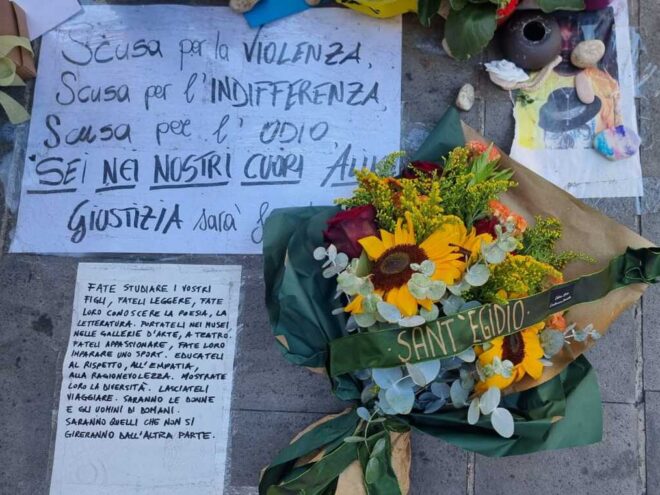 Scusa per la VIOLENZA,
Scusa per l'INDIFFERENZA,
Scusa per l' ODIO
SEI NEI NOSTRI CUORI
GIUSTIZIA sarà
FATE STUDIARE I VOSTRI
FIGLI, FATELI LEGGERE, FATE
LORO CONOSCERE LA POESIA, LA
LETTERATURA. PORTATELI NEI MUSEI
NELLE GALLERIE D'ARTE, A TEATRO.
FATELI APPASSIONARE, FATE LORO
IMPARARE UNO SPORT. EDUCATELI
AL RISPETTO, ALL'EMPATIA,
ALLA RAGIONEVOLEZZA. MOSTRATE
LORO LA DIVERSITÀ. LASCIATELI
VIAGGIARE. SARANNO LE DONNE
E GLI UOMINI DI DOMANI.
SARANNO QUELLI CHE NON SI
GIRERANNO DALL'ALTRA PARTE.
SANT'EGIDIO